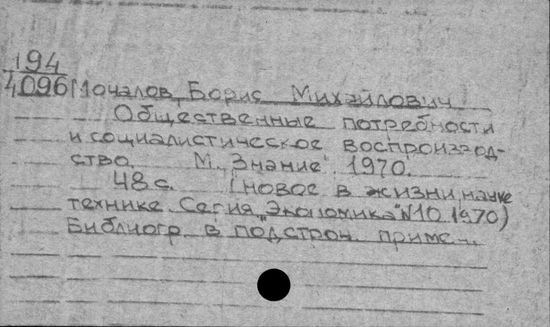 194
4096 Мочалов, Борис Михайлович
Общественные потребности
и социалистическое воспроизвод-
ство. М., "Знание", 1970.
48 с. (Новое в жизни, науке
технике. Серия "Экономика" №10, 1970)
Библиогр. в подстроч. примеч.